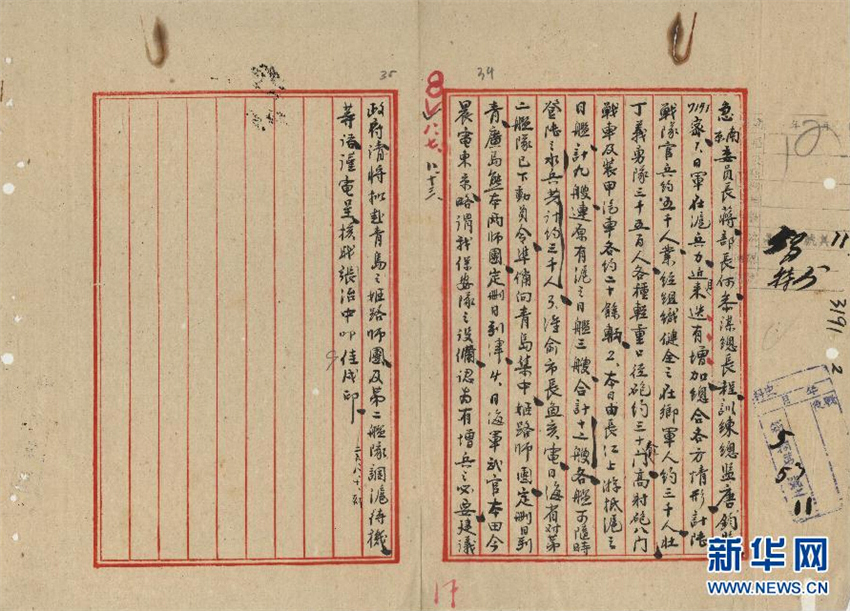 急南京委員長蔣部長何參謀總長程訓練總監唐鈞鑒
7193密1、日軍在滬兵力近來迭有增加總合各方情形計陸
戰隊官兵約五千人業經組織健全之在鄉軍人約三千人壯
丁義勇隊三千五百人各種輕重口徑砲約三十餘門高射砲八門
戰車及裝甲汽車各約二十餘輛2、本日由長江上游抵滬之
日艦計九艘連原有滬之日艦三艘合計十二艘各艦可隨時
登陸之水兵共計約三千人3、准俞市長魚亥電日海省對第
二艦隊已下動員令準備向青島集中姬路師團定刪日到
青廣島熊本兩師團定刪日到津4、日海軍武官本田今
晨電東京略謂我保安隊之設備認為有增兵之必要建議
政府請將擬赴青島之姬路師團及第二艦隊調滬待機
等語謹電呈核職張治中叩佳戌印
34
35
8
八、七、
17
3191
2
11
5
57
11
新华网
WWW.NEWS.CN